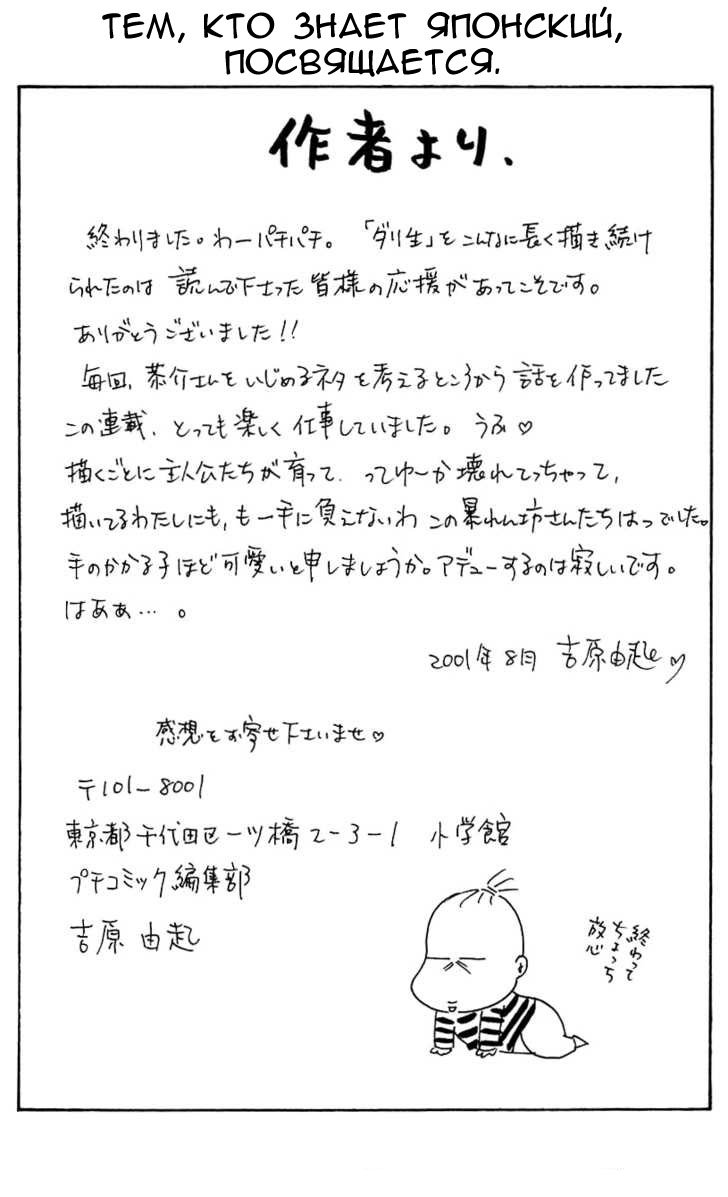 ТЕМ, КТО ЗНАЕТ ЯПОНСКИЙ,
ПОСВЯЩАЕТСЯ.
作者より、
終わりました。わーパチパチ。「ダリ生」をこんなに長く描き続け
られたのは 読んで下さった皆様の応援があってこそです。
ありがとうございました!!
毎回、恭介さんをいじめるネタを考えるところから話を作ってました
この連載、とっても楽しく仕事していました。うふ♡
描くごとに主人公たちが育って、ってゆ〜か壊れてっちゃって、
描いてるわたしにも、も一手に負えないわ この暴れん坊さんたちはっでした。
手のかかる子ほど可愛いと申しましょうか。アデューするのは寂しいです。
はあぁ…。
2001年8月 吉原由起♡
感想をお寄せ下さいませ♡
〒101-8001
東京都千代田区一ツ橋2-3-1 小学館
プチコミック編集部
吉原由起
終わって
ちょっち
放心